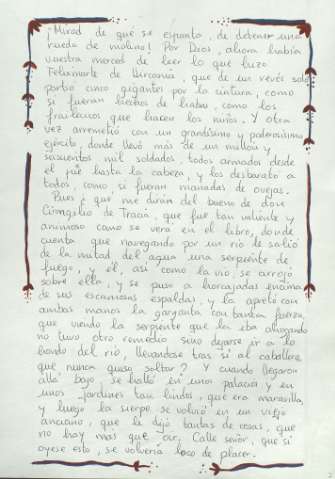 ¡Mirad de que se espanta, de detener una
rueda de molino! Por Dios, ahora había
vuestra merced de leer lo que hizo
Felixmarte de Hircania, que de un revés solo
partió cinco gigantes por la cintura, como
si fueran hechos de habas, como los
frailecicos que hacen los niños. Y otra
vez arremetió con un grandísimo y poderosísimo
ejército, donde llevó más de un millón y
seiscientos mil soldados, todos armados desde
el pie hasta la cabeza, y los desbarató a
todos, como si fueran manadas de ovejas.
Pues ¿ que me dirán del bueno de don
Cirongilio de Tracia, que fue tan valiente y
animoso como se verá en el libro, donde
cuenta que navegando por un río le salió
de la mitad del agua una serpiente de
fuego, y él, así como la vio, se arrojó
sobre ella, y se puso a horcajadas encima
de sus escamosas espaldas, y la apretó con
ambas manos la garganta con tanta fuerza,
que viendo la serpiente que la iba ahogando
no tuvo otro remedio sino dejarse ir a lo
hondo del río, llevándose tras sí al caballero
que nunca quiso soltar? Y cuando llegaron
allá bajo se halló en unos palacios y en
unos jardines tan lindos, que era maravilla,
y luego la sierpe se volvió en un viejo
anciano, que le dijo tantas de cosas, que
no hay mas que oir. Calle señor, que si
oyese esto, se volvería loco de placer.